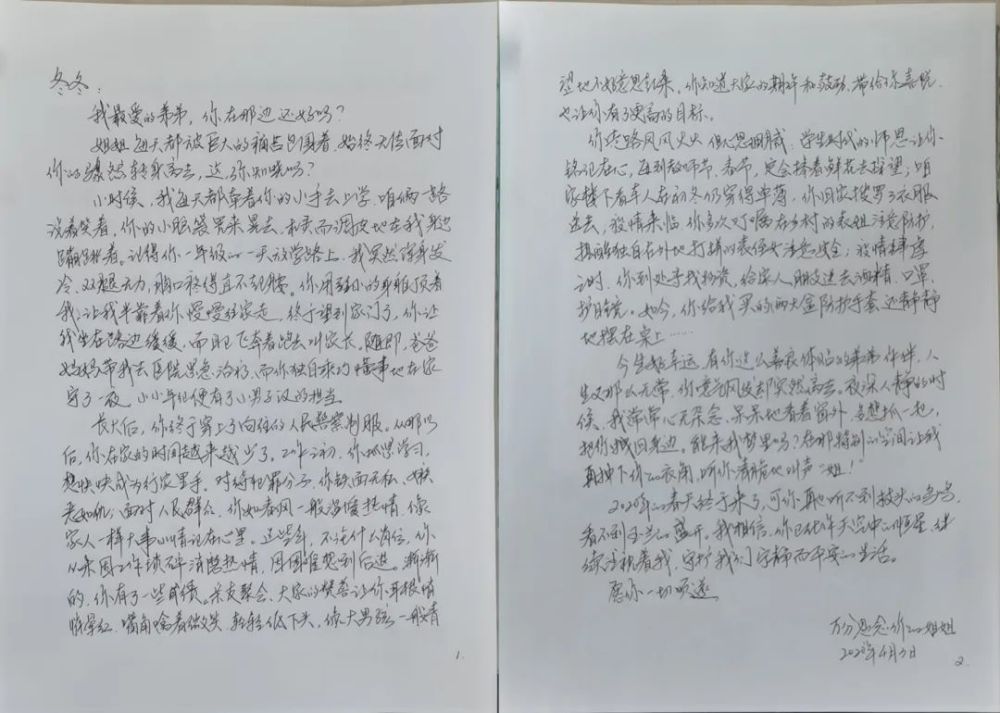 冬冬：
我最爱的弟弟，你在那边还好吗？
姐姐每天都被巨大的痛苦包围着，始终无法面对
你的骤然转身离去，这，你知晓吗？
小时候，我每天都牵着你的小手去上学，咱俩一路
说着笑着，你的小脑袋晃来晃去，机灵而调皮地在我身边
蹦跶着。记得你一年级的一天放学路上，我突然浑身发
冷，双腿无力，胸口疼得直不起腰。你用弱小的身躯顶着
我，让我半靠着你慢慢往家走。终于望到家门了，你让
我坐在路边缓缓，而自己飞奔着跑去叫家长。随即，爸爸
妈妈带我去医院紧急治疗，而你独自乖巧懂事地在家
守了一夜，小小年纪便有了小男子汉的担当。
长大后，你终于穿上了向往的人民警察制服。从那以
后，你在家的时间越来越少了。工作之初，你孜思学习，
想快快成为行家里手，对待犯罪分子，你铁面无私、嫉
恶如仇；面对人民群众，你如春风一般温暖热情，像
家人一样大事小情记在心里。这些年，不论什么岗位，你
从未因工作琐碎消磨热情，因困难想到后退。渐渐
的，你有了一些成绩。亲友聚会，大家的赞誉让你耳根悄
悄学红，嘴角噙着微笑，轻轻低下头，像大男孩一般有
望地不好意思起来。你知道大家的期许和鼓励，带给你喜悦，
也让你有了更高的目标。
你走路风风火火，但心思细腻：学生时代的师恩让你
铭记在心，每到教师节、春节，定会捧着鲜花去探望；咱
家楼下看车人在初冬仍穿得单薄，你回家便罗了衣服
送去；疫情来临，你多次叮嘱在乡村的表姐注意防护，
提醒独自在外地打拼的表侄女注意安全；疫情肆虐
之时，你到处寻找物资，给家人朋友送去酒精、口罩、
护目镜。如今，你给我买的两大盒防护手套还静静
地摆在桌上……
今生姐幸运，有你这么善良体贴的弟弟作伴，人
生又那么无常，你意气风发却突然离去。夜深人静的时
候，我常常心无杂念，呆呆地看着窗外，多想抓一把，
把你拽回身边。能来我梦里吗？在那特别的空间让我
再拽下你的衣角，听你清脆地叫声“姐”！
2020年的春天终于来了，可你再也听不到枝头的鸟鸣，
看不到玉兰的盛开。我相信，你已化作天空中的恒星，继
续注视着我，守护我们宁静而平安的生活。
愿你一切顺遂
万分思念你的姐姐
2020年4月3日
1.
2.